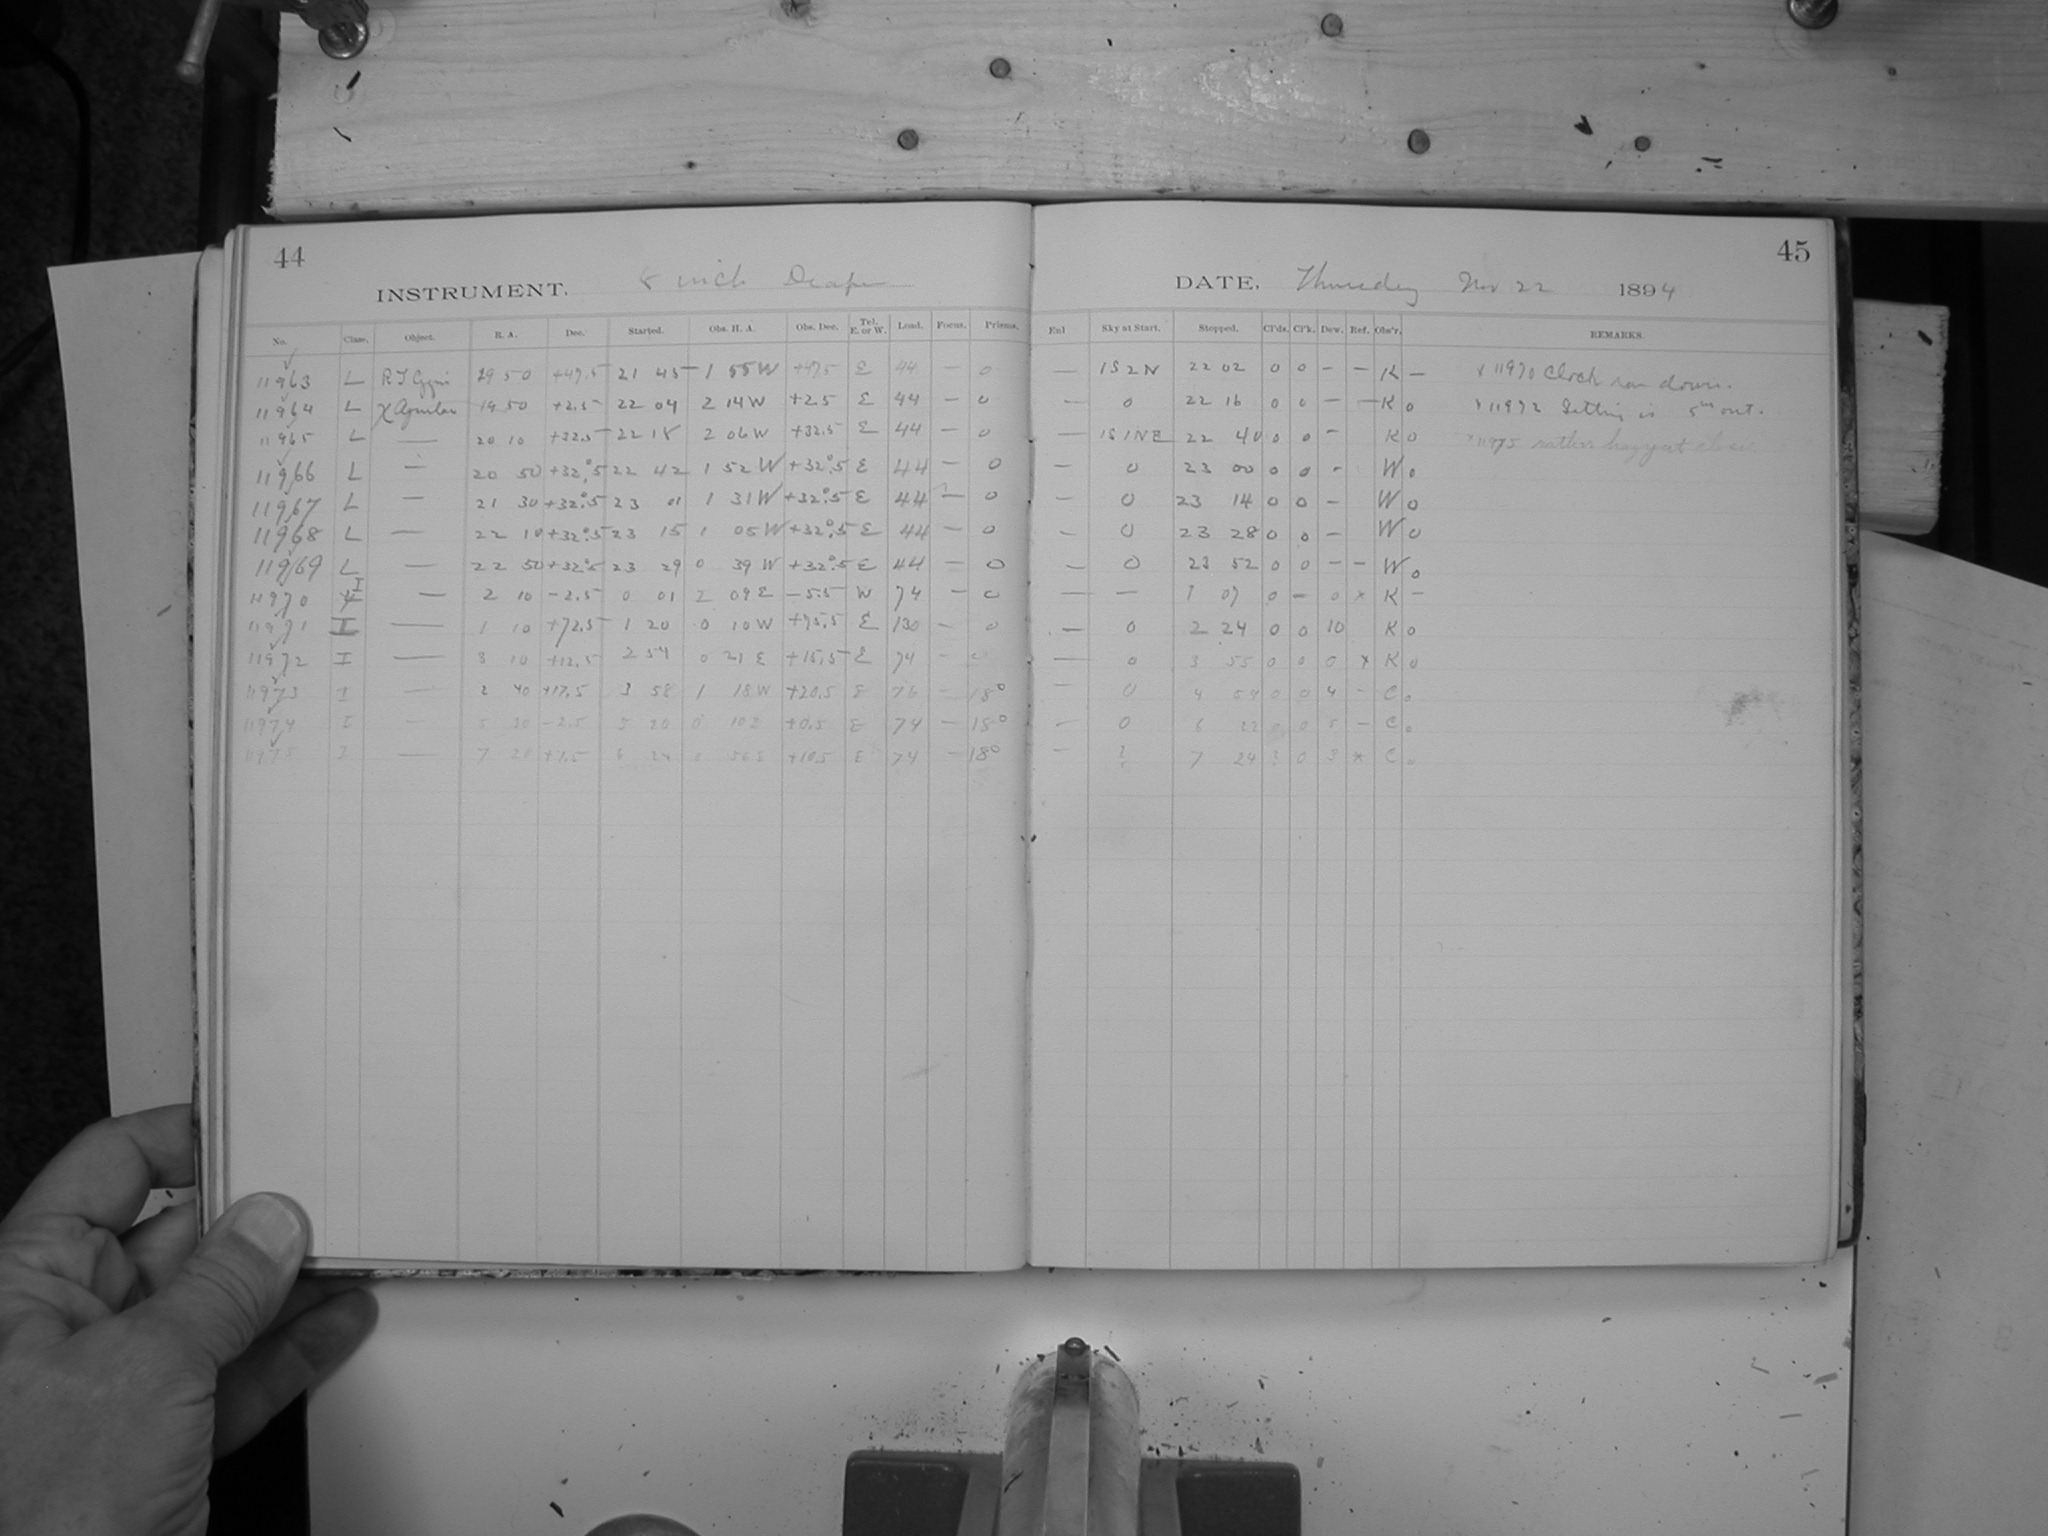 44
INSTRUMENT. 8 inch Draper
No. Class. Object. R. A. Dec. Started. Obs. H. A. Obs. Dec. Tel. E. or W. Load. Focus. Prisms.
11963 L 19 50 +47.5 21 45 1 55 W +47.5 E 44 — 0
11964 L χ Aquilae 19 50 +2.5 22 04 2 14 W +2.5 E 44 — 0
11965 L — 20 10 +32.5 22 18 2 06 W +32.5 E 44 — 0
11966 L — 20 50 +32°.5 22 42 1 52 W +32°.5 E 44 — 0
11967 L — 21 30 +32°.5 23 01 1 31 W +32°.5 E 44 — 0
11968 L — 22 10 +32°.5 23 15 1 05 W +32°.5 E 44 — 0
11969 L — 22 50 +32°.5 23 29 0 39 W +32°.5 E 44 — 0
11970 I — 2 10 -2.5 0 01 2 09 E -5.5 W 74 — 0
11971 I — 1 10 +72.5 1 20 0 10 W +75.5 E 130 — 0
11972 I — 3 10 +12.5 2 54 0 21 E +15.5 E 74 — 0
11973 I — 2 40 +17.5 3 58 1 18 W +20.5 E 76 — 18°
11974 I — 5 30 -2.5 5 20 0 10 E +0.5 E 74 — 15°
11975 I — 7 20 +7.5 6 24 0 56 E +10.5 E 74 — 18°
45
DATE. Thursday Nov 22 1894
Enl Sky at Start. Stopped. Cl'ds. Cl'k. Dew. Ref. Obs'r. REMARKS.
— 1S2N 22 02 0 0 — — K — x 11970 Clock ran down.
— 0 22 16 0 0 — — K 0 x 11972 Setting is 5m out.
— 1S1NE 22 40 0 0 — K 0 x 11975 rather hazy at close.
— 0 23 00 0 0 - W 0
— 0 23 14 0 0 — W 0
— 0 23 28 0 0 — W 0
— 0 23 52 0 0 — — W 0
— — 1 07 0 — 0 x K —
— 0 2 24 0 0 10 K 0
— 0 3 55 0 0 0 x K 0
— 0 4 59 0 0 4 - C 0
— 0 6 22 0 0 5 — C 0
— ? 7 24 ? 0 3 x C 0